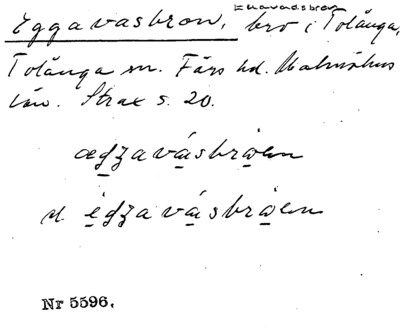 Eggavasbron, bro i Tolånga,
Tolånga sn. Färs hd. Malmöhus
län. Strax s. 20.
ædʒavásbrɷen
el. èdʒavásbrɷen
Nr 5596.